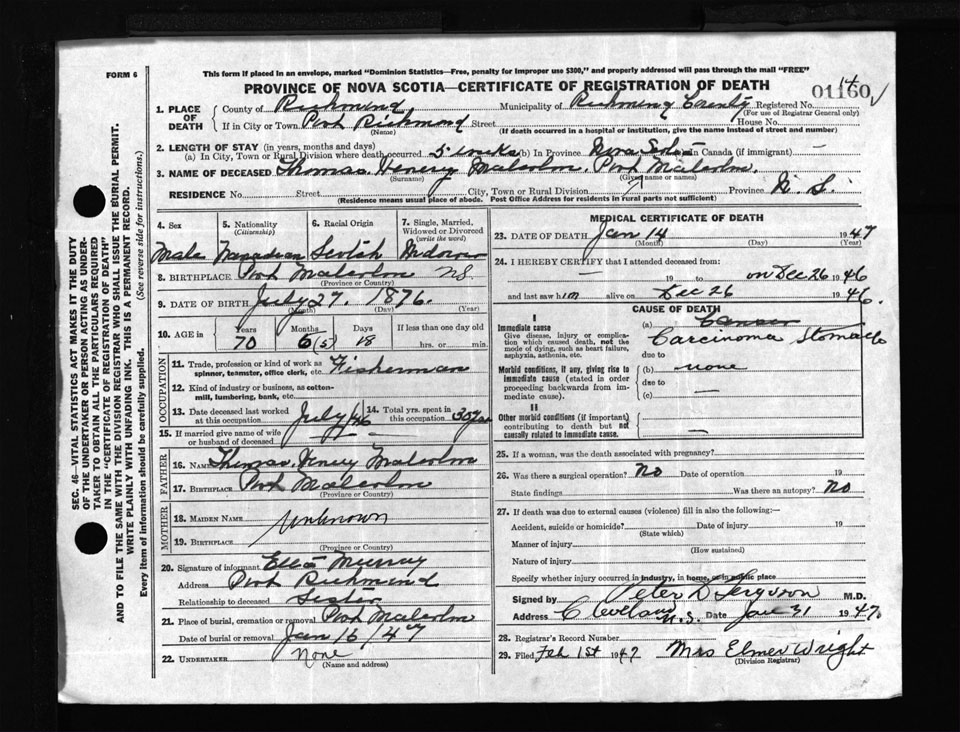 FORM 6
This form if placed in an envelope, marked "Dominion Statistics—Free, penalty for improper use $300," and properly addressed will pass through the mail "FREE"
PROVINCE OF NOVA SCOTIA—CERTIFICATE OF REGISTRATION OF DEATH
14
01160
SEC. 46—VITAL STATISTICS ACT MAKES IT THE DUTY
OF THE UNDERTAKER OR PERSON ACTING AS UNDER-
TAKER TO OBTAIN ALL THE PARTICULARS REQUIRED
IN THE "CERTIFICATE OF REGISTRATION OF DEATH"
AND TO FILE THE SAME WITH THE DIVISION REGISTRAR WHO SHALL ISSUE THE BURIAL PERMIT.
WRITE PLAINLY WITH UNFADING INK. THIS IS A PERMANENT RECORD.
Every item of information should be carefully supplied. (See reverse side for instructions.)
1. PLACE OF DEATH
County of Richmond Municipality of Richmond County Registered No.
(For use of Registrar General only)
If in City or Town Port Richmond Street House No.
(Name) (If death occurred in a hospital or institution, give the name instead of street and number)
2. LENGTH OF STAY (in years, months and days)
(a) In City, Town or Rural Division where death occurred 5 weeks (b) In Province Nova Scotia in Canada (if immigrant) —
3. NAME OF DECEASED Thomas Henery Malcolm, Port Malcolm,
(Surname) (Given name or names)
RESIDENCE No. Street City, Town or Rural Division Province N. S.
(Residence means usual place of abode. Post Office Address for residents in rural parts not sufficient)
4. Sex 5. Nationality (Citizenship) 6. Racial Origin 7. Single, Married, Widowed or Divorced (write the word)
Male Canadian Scotch Widower
8. BIRTHPLACE Port Malcolm NS.
(Province or Country)
9. DATE OF BIRTH July 27. 1876.
(Month) (Day) (Year)
10. AGE in Years Months Days If less than one day old
70 6 (5) 18 hrs. or min.
OCCUPATION
11. Trade, profession or kind of work as spinner, teamster, office clerk, etc. Fisherman
12. Kind of industry or business, as cotton-mill, lumbering, bank, etc.
13. Date deceased last worked at this occupation July/46 14. Total yrs. spent in this occupation 30 yrs
15. If married give name of wife or husband of deceased —
FATHER
16. NAME Thomas Henery Malcolm
17. BIRTHPLACE Port Malcolm
(Province or Country)
MOTHER
18. MAIDEN NAME Unknown
19. BIRTHPLACE
(Province or Country)
20. Signature of informant Ella Murray
Address Port Richmond
Relationship to deceased Sister
21. Place of burial, cremation or removal Port Malcolm
Date of burial or removal Jan 16/47
22. UNDERTAKER None
(Name and address)
MEDICAL CERTIFICATE OF DEATH
23. DATE OF DEATH Jan 14 1947
(Month) (Day) (Year)
24. I HEREBY CERTIFY that I attended deceased from:
— 19 to on Dec 26 1946
and last saw him alive on Dec 26 1946.
CAUSE OF DEATH
I
Immediate cause
Give disease, injury or complication which caused death, not the mode of dying, such as heart failure, asphyxia, asthenia, etc.
(a) Cancer
Carcinoma Stomach
due to
Morbid conditions, if any, giving rise to immediate cause (stated in order proceeding backwards from immediate cause).
(b) none
due to
(c) —
II
Other morbid conditions (if important) contributing to death but not causally related to immediate cause. —
25. If a woman, was the death associated with pregnancy?
26. Was there a surgical operation? No Date of operation 19
State findings Was there an autopsy? No
27. If death was due to external causes (violence) fill in also the following:—
Accident, suicide or homicide? Date of injury 19
(State which)
Manner of injury
(How sustained)
Nature of injury
Specify whether injury occurred in industry, in home, or in public place
Signed by Peter D Ferguson M.D.
Address Cleveland N.S. Date Jan 31 1947
28. Registrar's Record Number
29. Filed Feb 1st 1947 Mrs Elmer Wright
(Division Registrar)